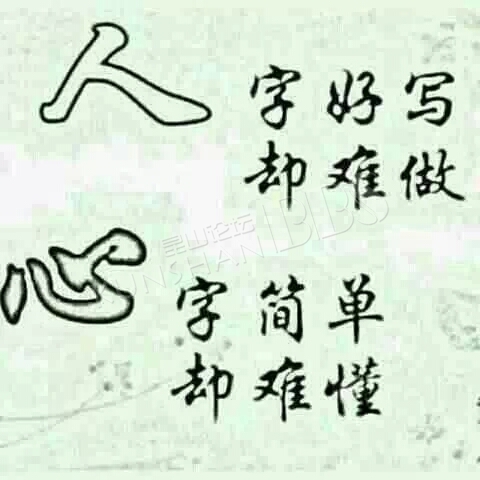 人字好写
却难做
心字简单
却难懂
昆山论坛
KUNSHANBBS